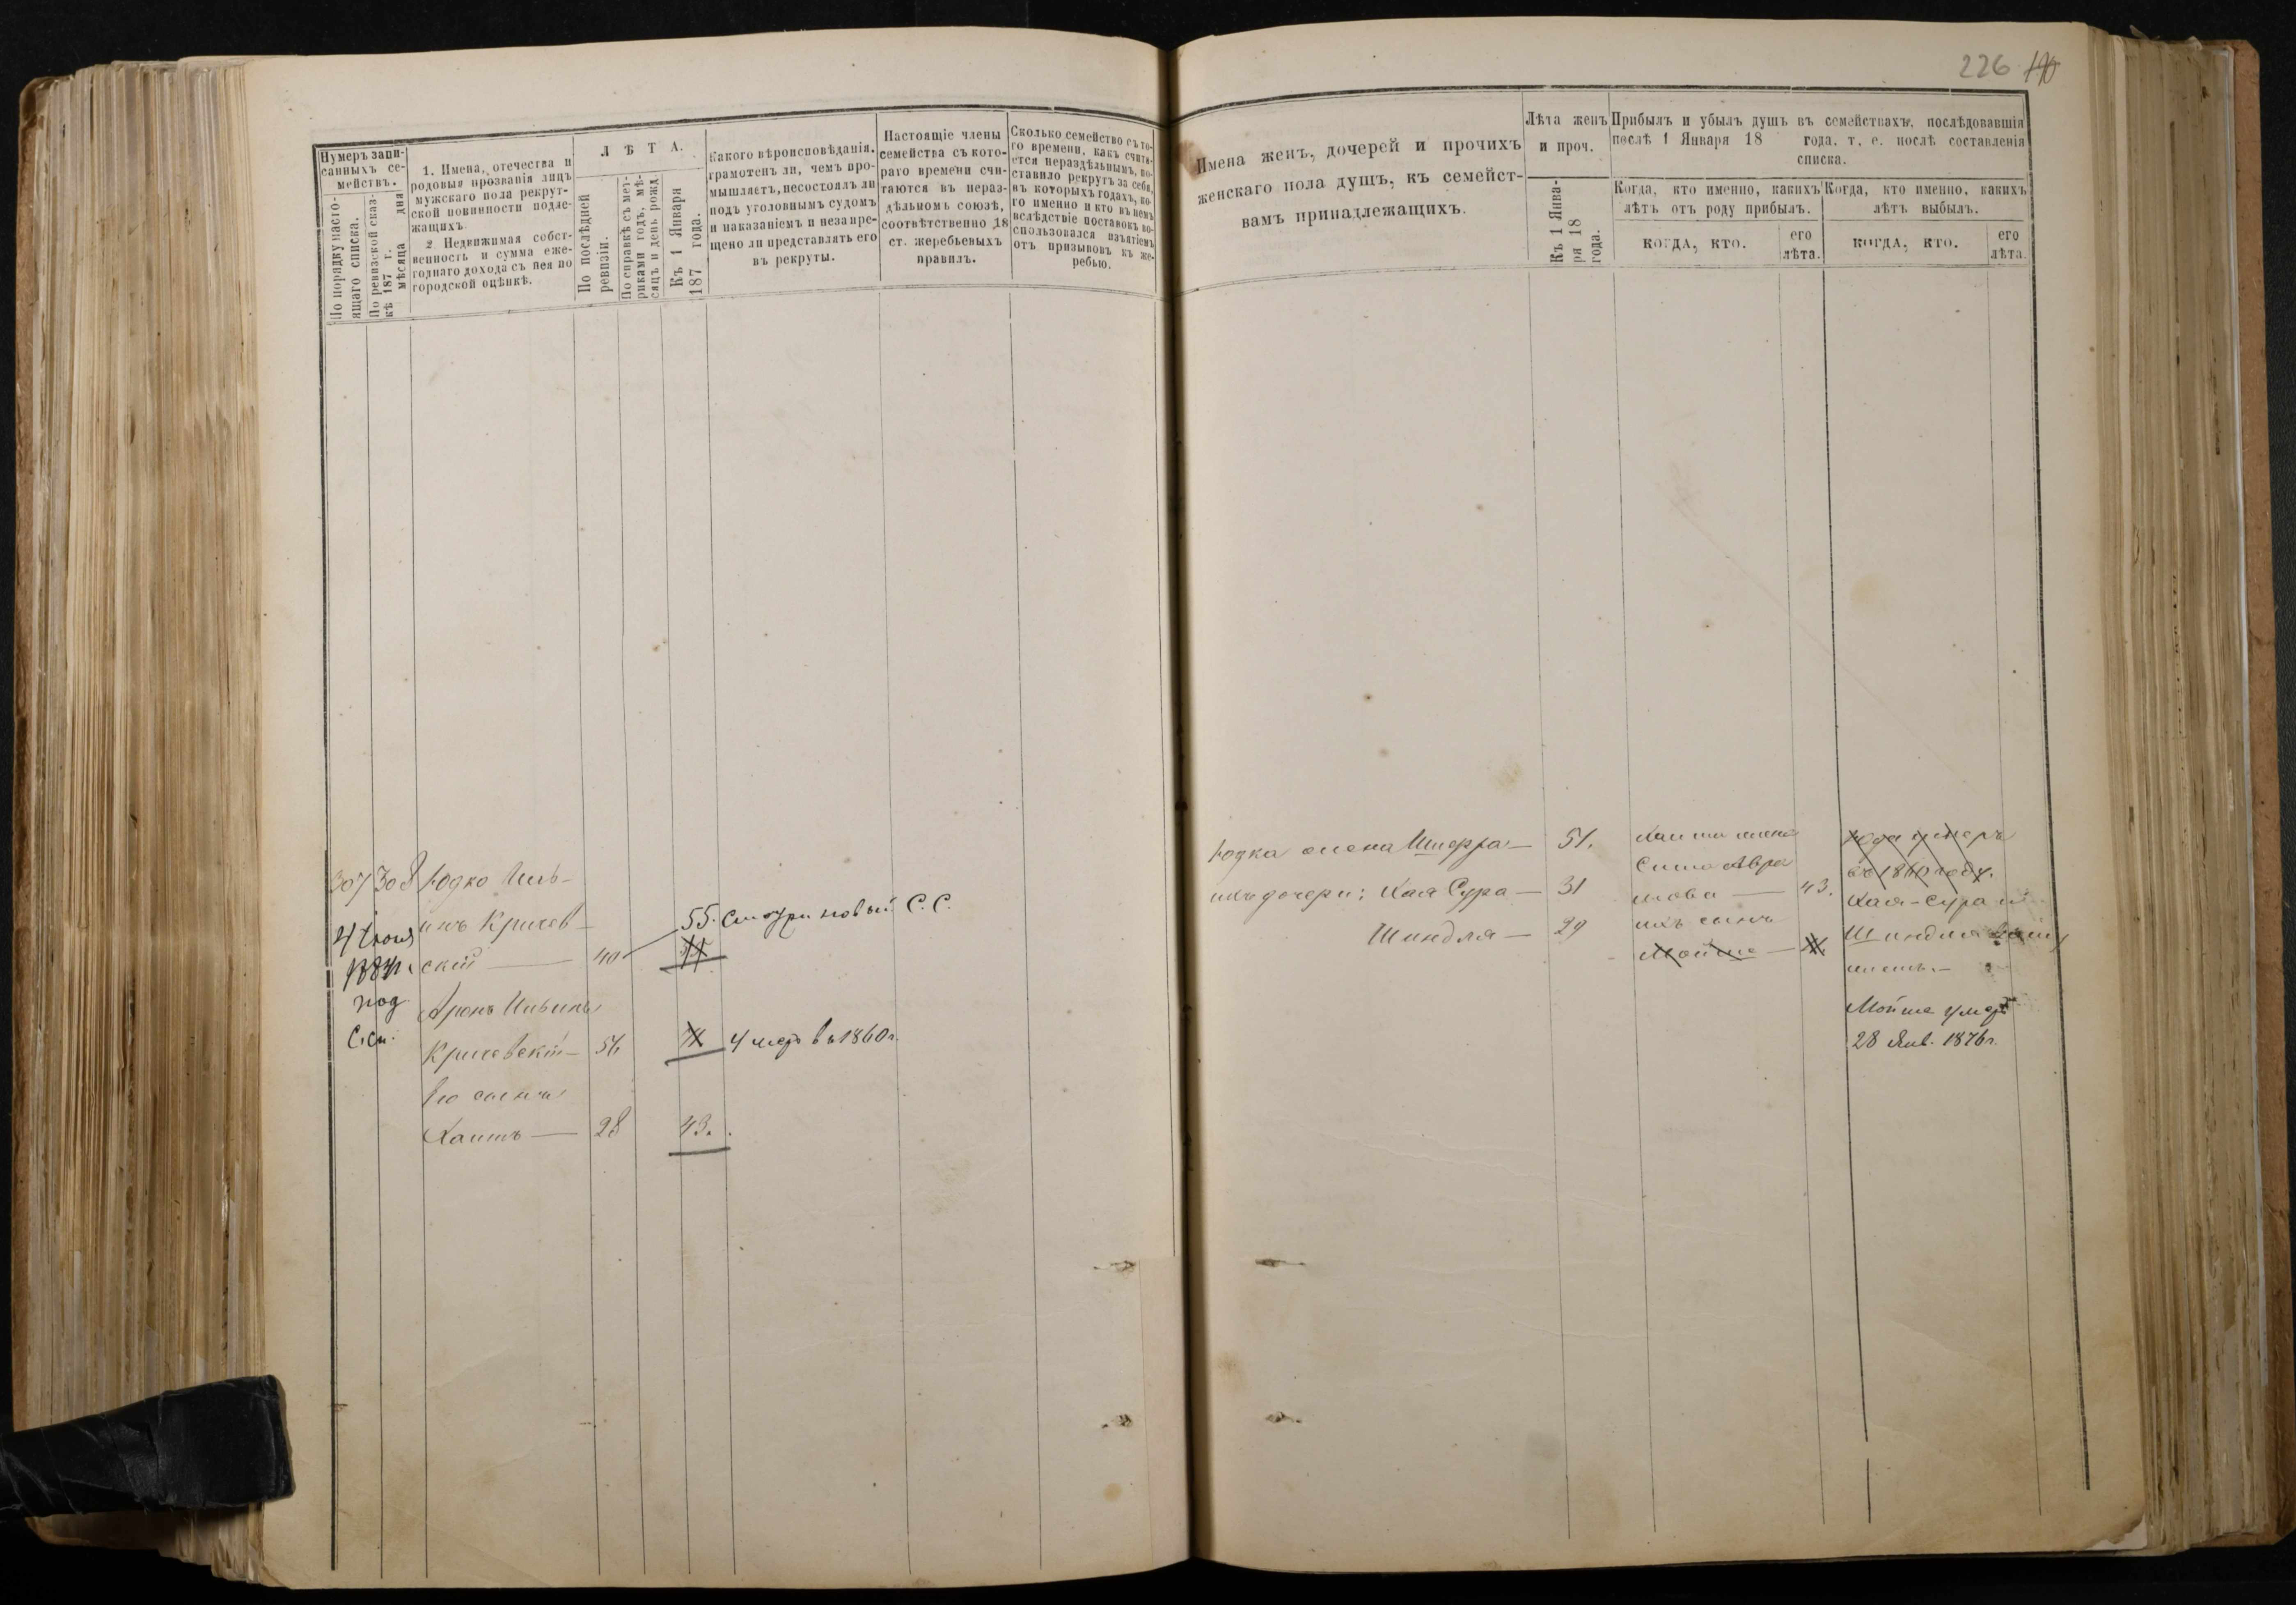 226 190
Нумеръ запи-
санныхъ се-
мействъ.
По порядку насто-
ящаго списка.
По ревизской сказ-
кѣ 187 г.
мѣсяца дня
1. Имена, отечества и
родовыя прозванія лицъ
мужскаго пола рекрут-
ской повинности подле-
жащихъ.
2. Недвижимая собст-
венность и сумма еже-
годнаго дохода съ нея по
городской оцѣнкѣ.
Л Ѣ Т А.
По послѣдней
ревизіи.
По справкѣ съ мет-
риками годъ, мѣ-
сяцъ и день рожд.
Къ 1 Января
187 года.
Какого вѣроисповѣданія.
грамотенъ ли, чѣмъ про-
мышляетъ, несостоялъ ли
подъ уголовнымъ судомъ
и наказаніемъ и незапре-
щено ли представлять его
въ рекруты.
Настоящіе члены
семейства съ кото-
раго времени счи-
таются въ нераз-
дѣльномъ союзѣ,
соотвѣтственно 18
ст. жеребьевыхъ
правилъ.
Сколько семейство съ то-
го времени, какъ счита-
ется нераздѣльнымъ, по-
ставило рекрутъ за себя,
въ которыхъ годахъ, ко-
го именно и кто въ немъ
вслѣдствіе поставокъ во-
спользовался изъятіемъ
отъ призывовъ къ же-
ребью.
307 308 Юдко Иль-
инъ Кричев-
ский — 40 55. Смотри новый С. С.
4 Июня
1884 г.
под
С.сп.
Аронъ Ильинъ
Кричевский — 56 умеръ въ 1860 г.
Его сынъ
Хаимъ — 28 43.
Имена женъ, дочерей и прочихъ
женскаго пола душъ, къ семейст-
вамъ принадлежащихъ.
Лѣта женъ
и проч.
Къ 1 Янва-
ря 18
года.
Прибылъ и убылъ душъ въ семействахъ, послѣдовавшія
послѣ 1 Января 18 года, т. е. послѣ составленія
списка.
Когда, кто именно, какихъ
лѣтъ отъ роду прибылъ.
когда, кто.
его
лѣта.
Когда, кто именно, какихъ
лѣтъ выбылъ.
когда, кто.
его
лѣта.
Юдка жена Шифра — 51.
ихъ дочери: Хая Сура — 31
Шиндля — 29
Хаима жена
Сима Абра
мова — 43.
ихъ сынъ
Мойше —
Юда умеръ
въ 1860 году.
Хая-Сура и
Шиндля
Мойше умеръ
28 Янв. 1876 г.